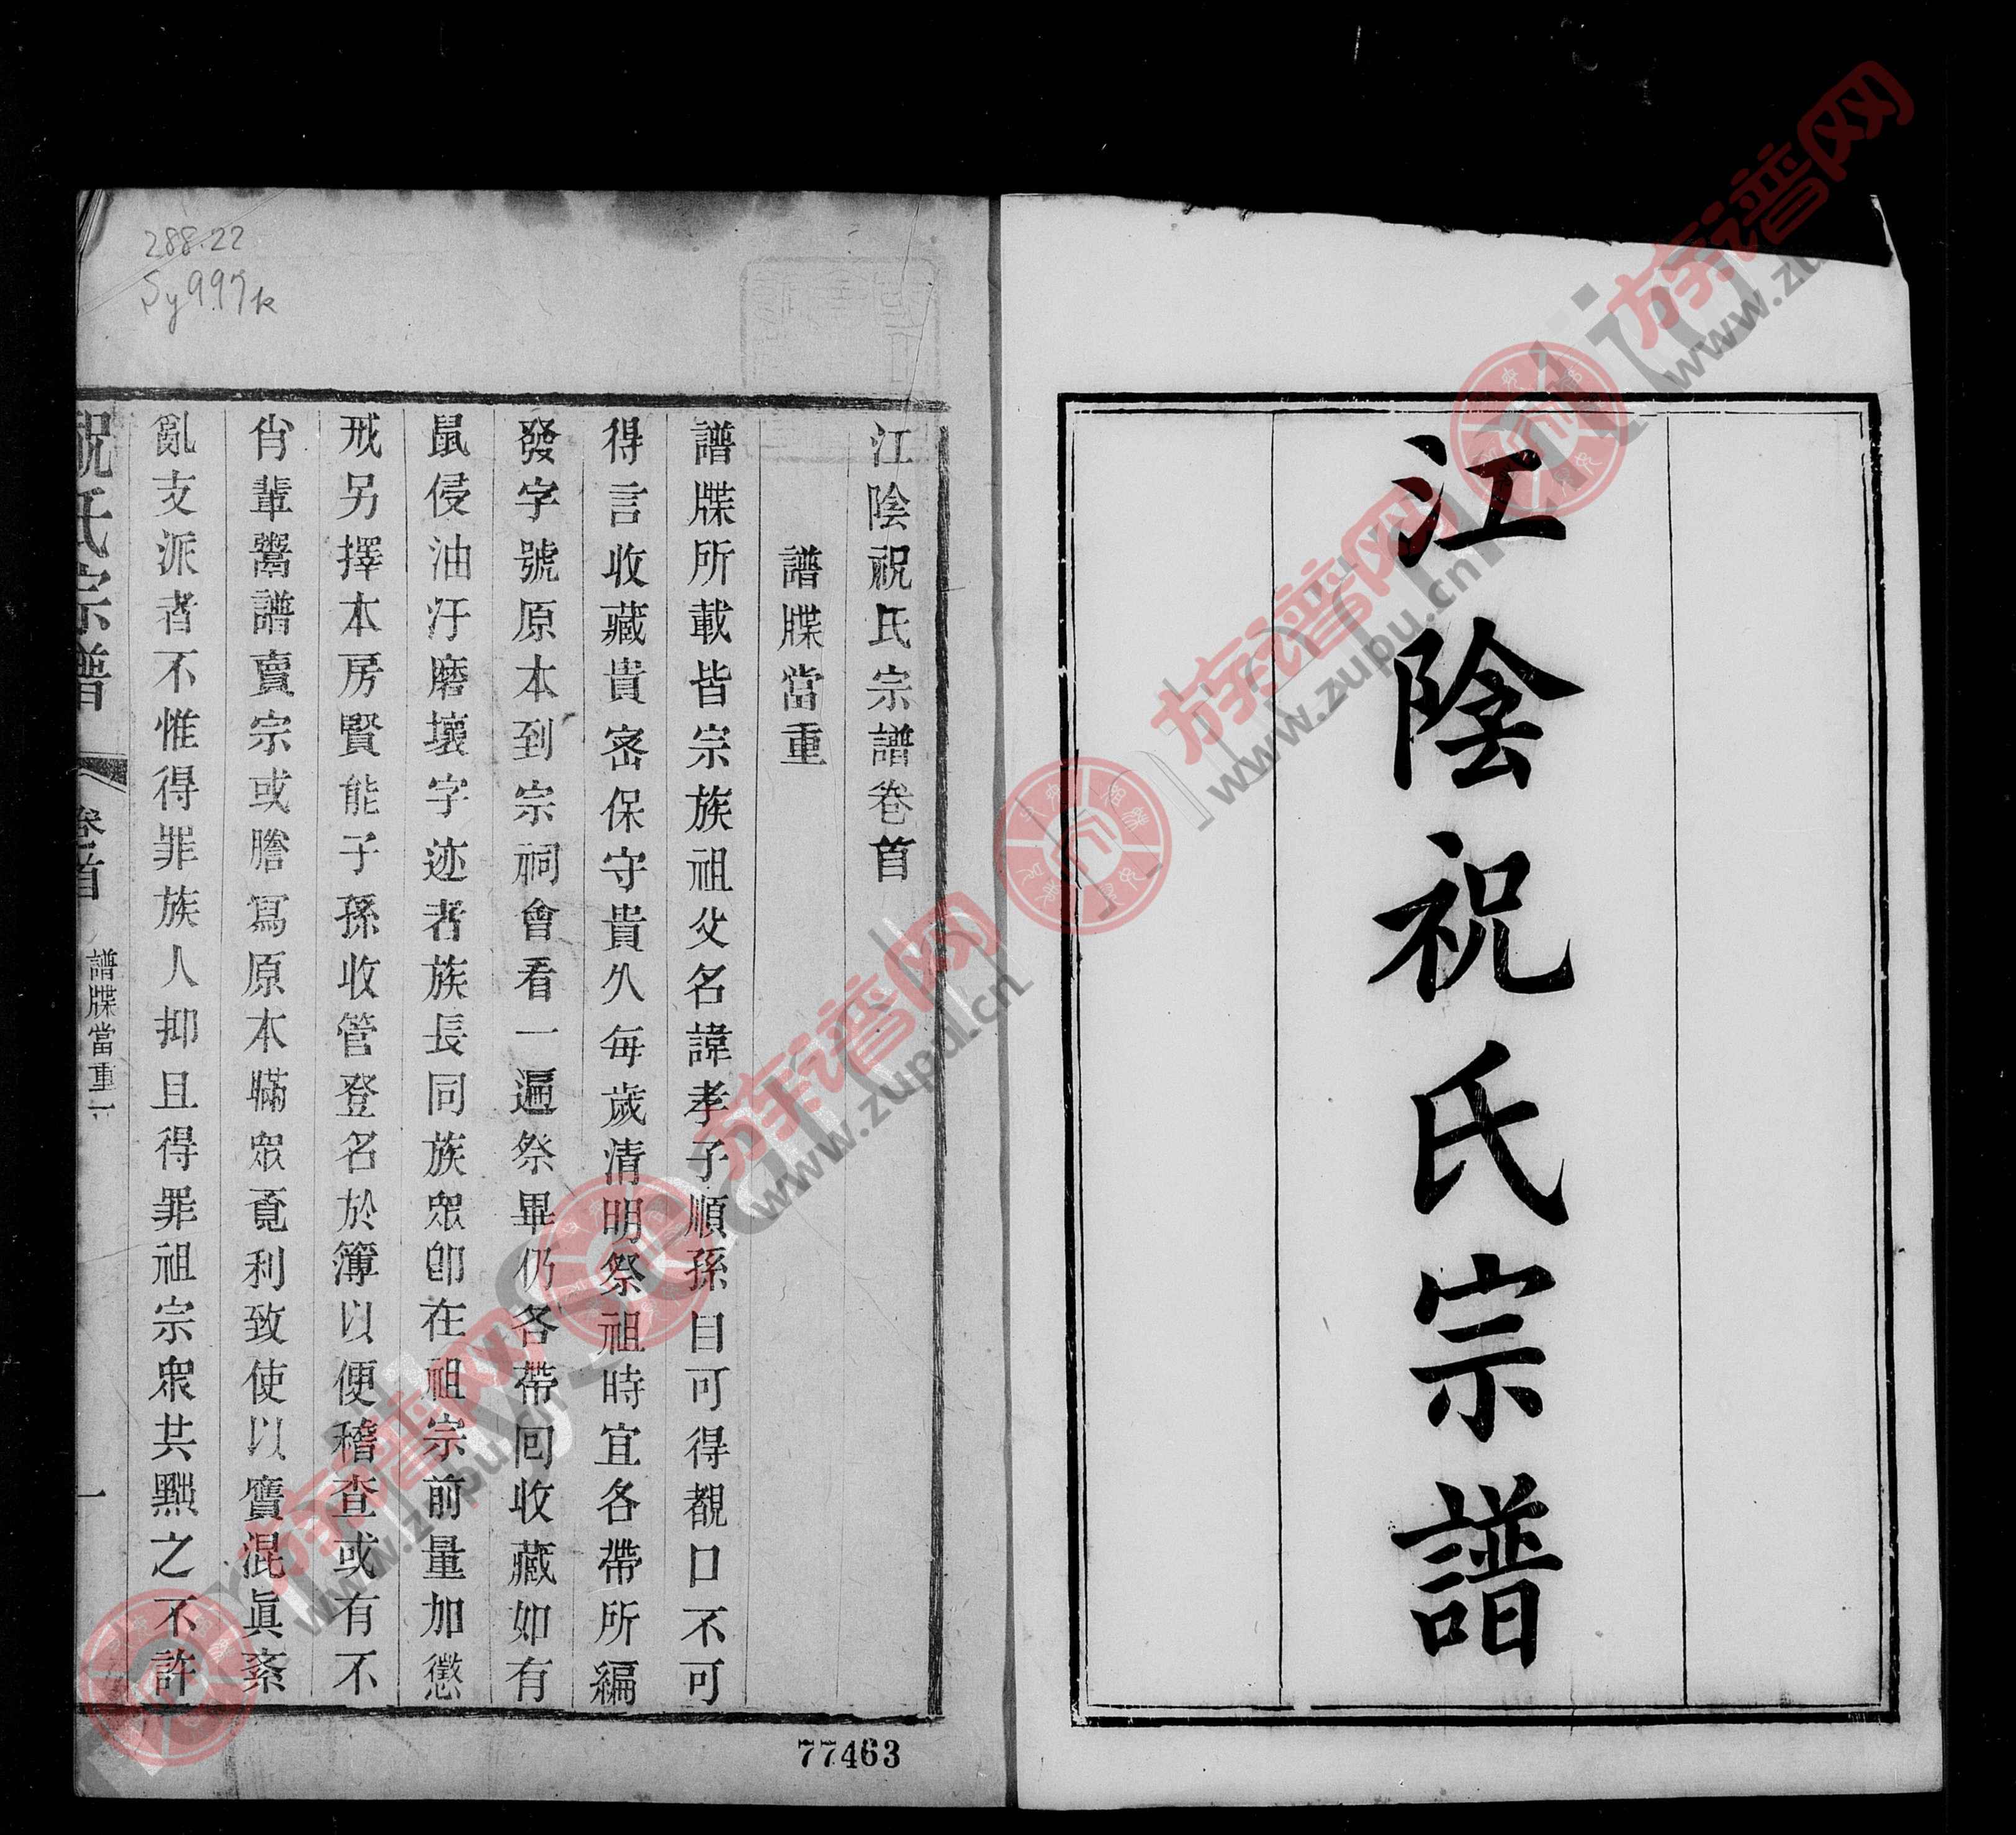 江陰祝氏宗譜
江陰祝氏宗譜卷首
譜牒當重
譜牒所載皆宗族祖父名諱孝子順孫目可得覩口不可
得言收藏貴密保守貴久每歲清明祭祖時宜各帶所編
發字號原本到宗祠會看一遍祭畢仍各帶回收藏如有
鼠侵油汙磨壞字迹者族長同族眾即在祖宗前量加懲
戒另擇本房賢能子孫收管登名於簿以便稽查或有不
肖輩鬻譜賣宗或謄寫原本瞞眾覓利致使以贗混眞紊
亂支派者不惟得罪族人抑且得罪祖宗眾共黜之不許
祝氏宗譜
卷首
譜牒當重
一
288.22
Sy997k
77463
族谱网
www.zupu.cn
族谱网
www.zupu.cn
族谱网
www.zupu.cn
族谱网
www.zupu.cn